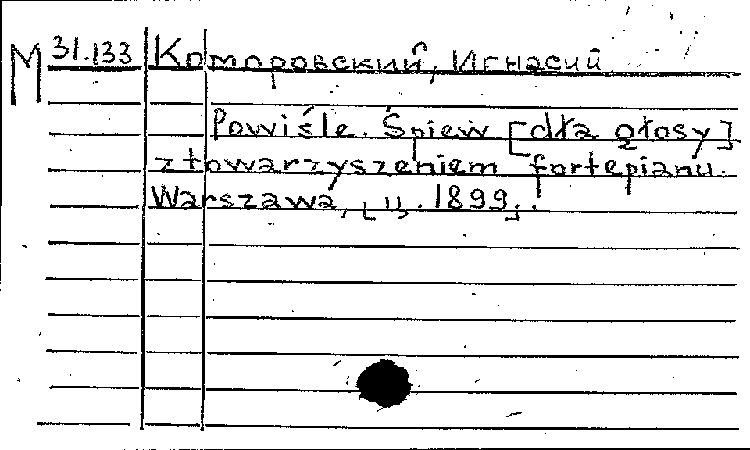 M 31.133 Комаровский, Игнасий
Powiśle. Śpiew [dła głosy]
z towarzyszeniem fortepianu.
Warszawa, [ц. 1899].